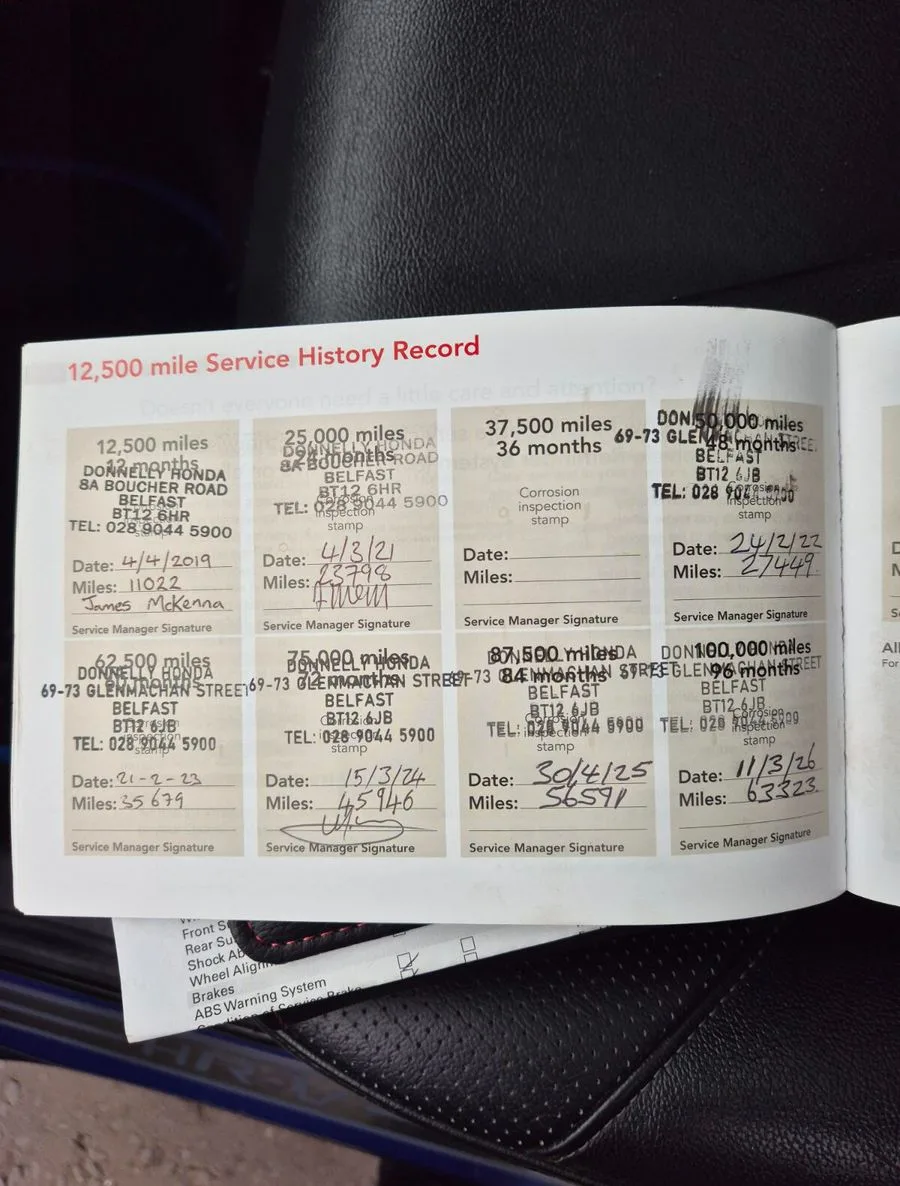 12,500 mile Service History Record
12,500 miles
12 months
DONNELLY HONDA
8A BOUCHER ROAD
BELFAST
BT12 6HR
TEL: 028 9044 5900
stamp
Date: 4/4/2019
Miles: 11022
James McKenna
Service Manager Signature
25,000 miles
24 months
DONNELLY HONDA
8A BOUCHER ROAD
BELFAST
BT12 6HR
Corrosion
TEL: 028 9044 5900
inspection
stamp
Date: 4/3/21
Miles: 23798
Service Manager Signature
37,500 miles
36 months
Corrosion
inspection
stamp
Date:
Miles:
Service Manager Signature
50,000 miles
48 months
69-73 GLENMACHAN STREET
BELFAST
BT12 6JB
Corrosion
TEL: 028 9044 5900
inspection
stamp
Date: 24/2/22
Miles: 27449
Service Manager Signature
62,500 miles
DONNELLY HONDA
60 months
69-73 GLENMACHAN STREET
BELFAST
BT12 6JB
Corrosion
TEL: 028 9044 5900
stamp
Date: 21-2-23
Miles: 35679
Service Manager Signature
75,000 miles
DONNELLY HONDA
72 months
69-73 GLENMACHAN STREET
BELFAST
BT12 6JB
TEL: 028 9044 5900
stamp
Date: 15/3/24
Miles: 45946
Service Manager Signature
87,500 miles
DONNELLY HONDA
84 months
69-73 GLENMACHAN STREET
BELFAST
BT12 6JB
Corrosion
TEL: 028 9044 5900
inspection
stamp
Date: 30/4/25
Miles: 56591
Service Manager Signature
100,000 miles
DONNELLY HONDA
96 months
69-73 GLENMACHAN STREET
BELFAST
BT12 6JB
Corrosion
TEL: 028 9044 5900
inspection
stamp
Date: 11/3/26
Miles: 63323
Service Manager Signature
All
For
Front S
Rear Su
Shock Ab
Wheel Alignm
Brakes
ABS Warning System
Condition of Service Brake